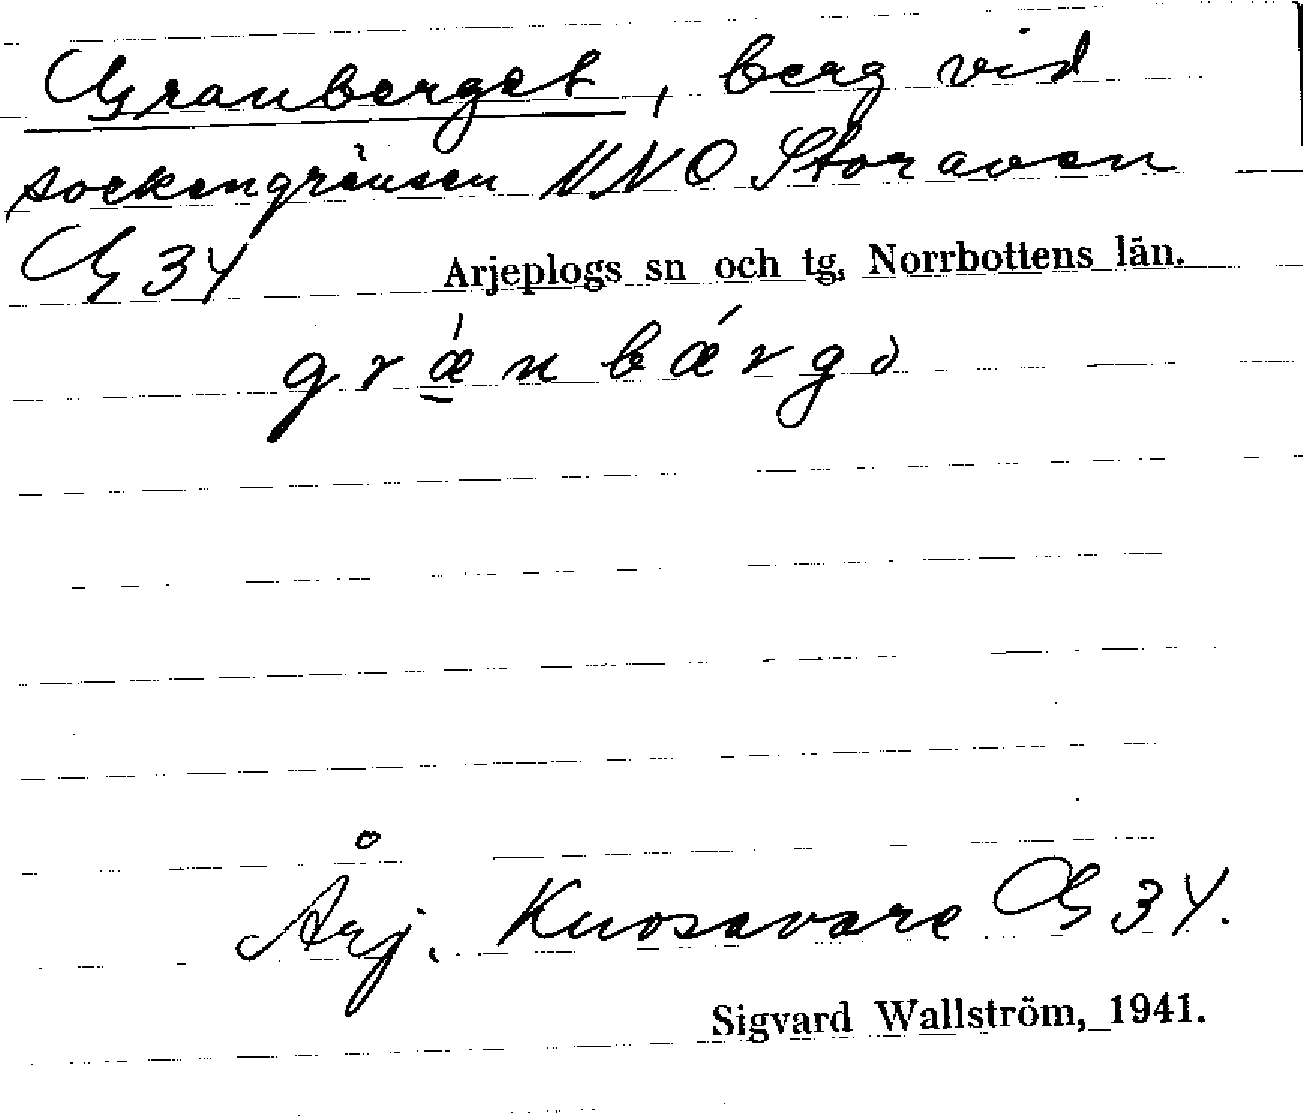 Granberget, berg vid
sockengränsen NNO Storavan
G 34
Arjeplogs sn och tg, Norrbottens län.
grǽ̠nbǽrgə
Årj. Kuosavare G 34.
Sigvard Wallström, 1941.